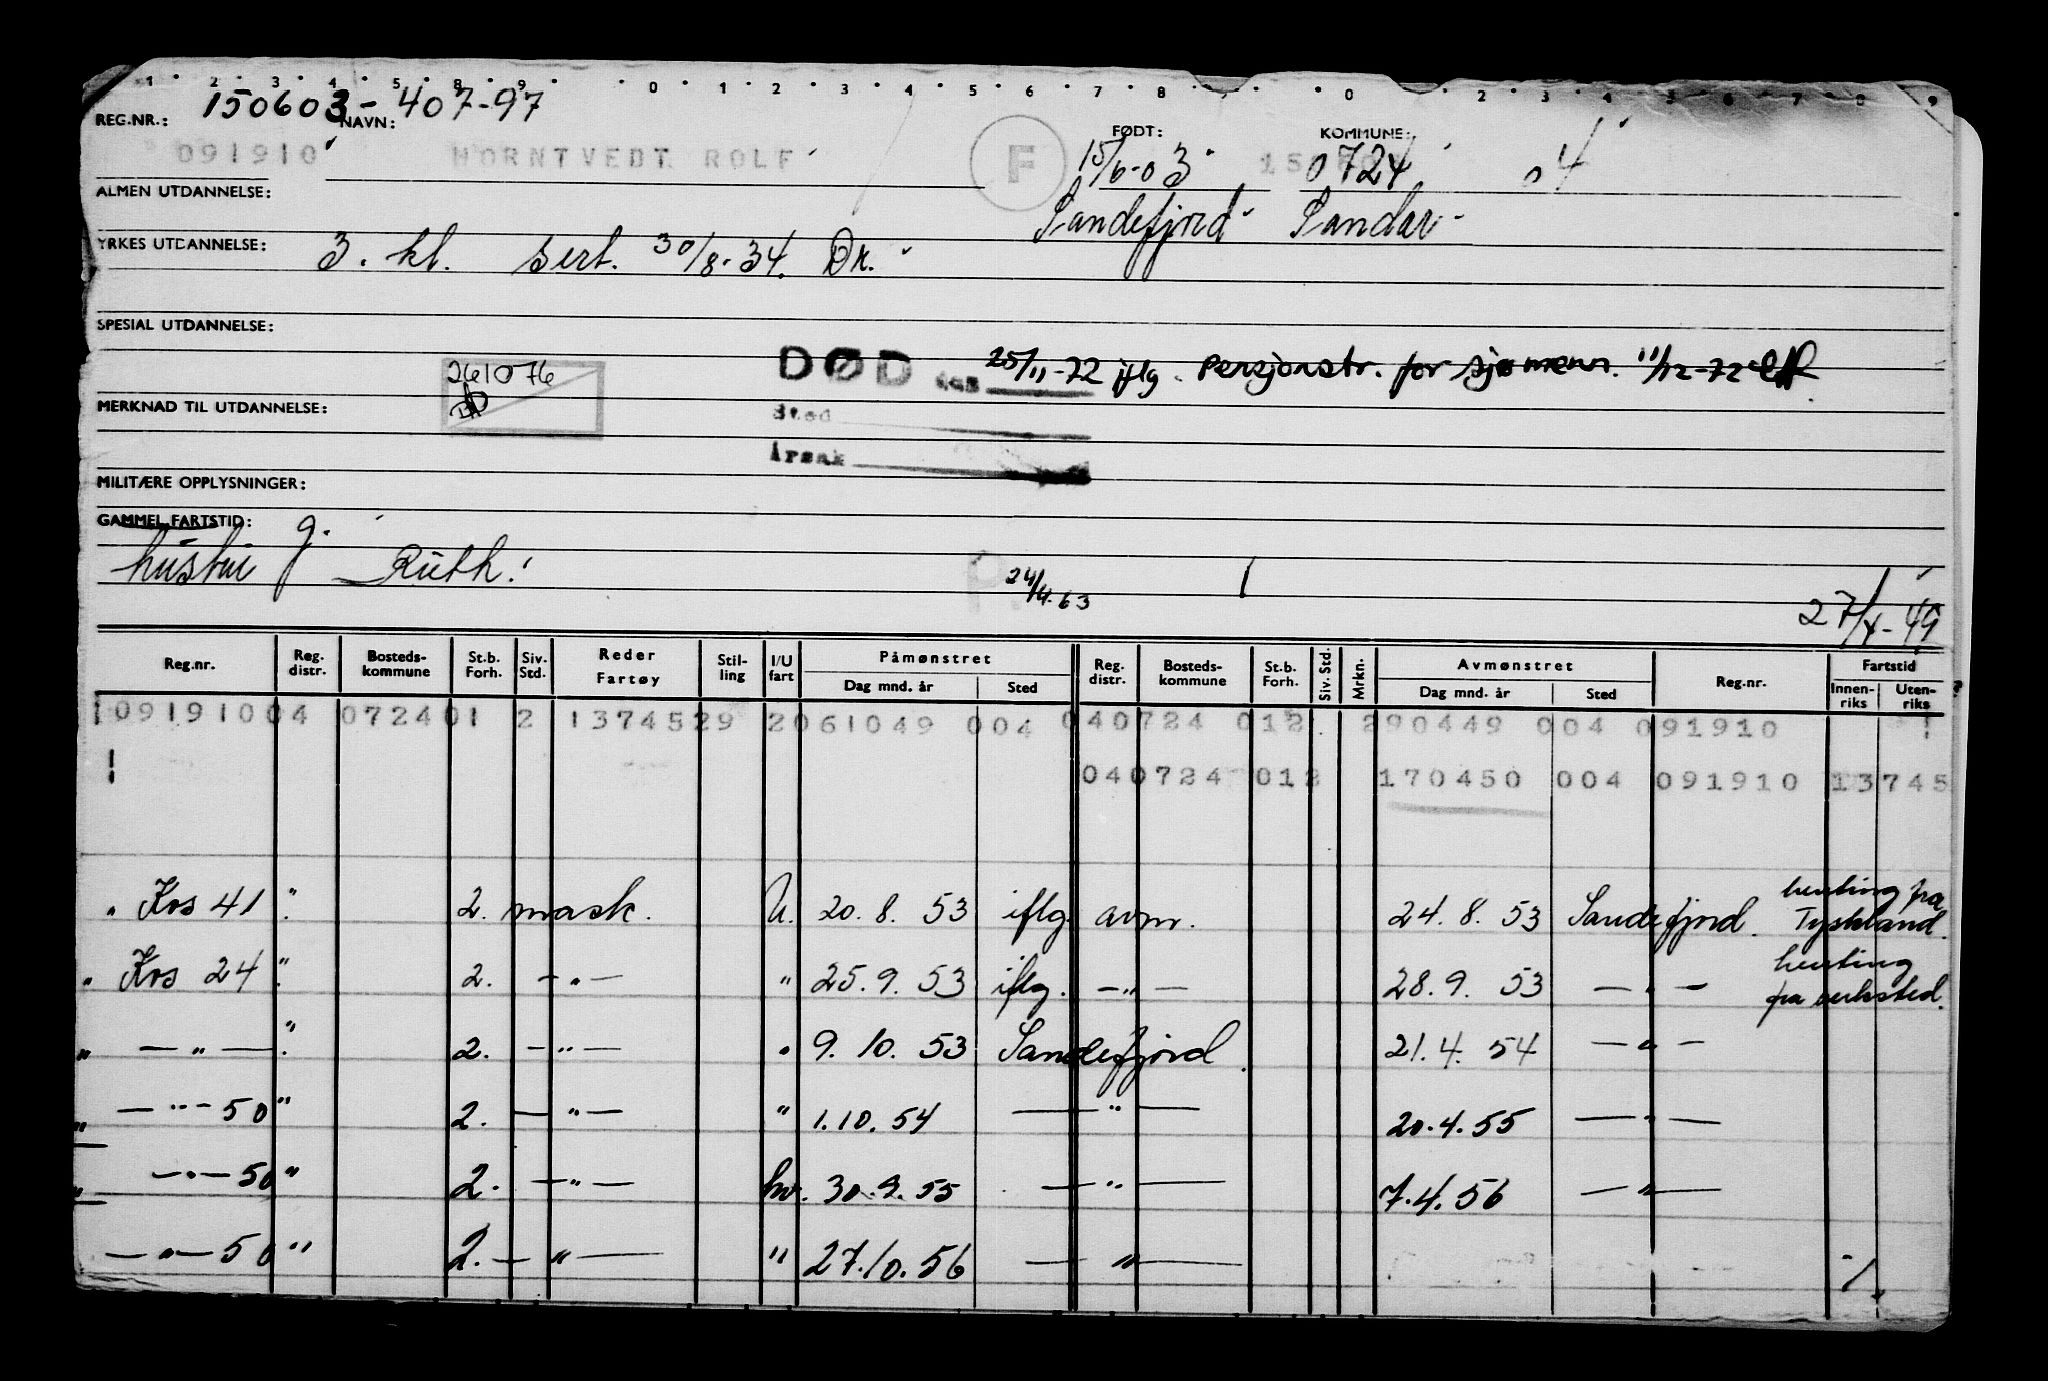 1 2 3 4 5 8 9 0 1 2 3 4 5 6 7 8 0 2 3 4 5 6 7 8 9
REG.NR.: 150603-407-97 NAVN: FØDT: KOMMUNE:
091910 HORNTVEDT ROLF F 15/6-03 0724 04
ALMEN UTDANNELSE: Sandefjord Sandar
YRKES UTDANNELSE: 3. kl. sert. 30/8-34. Dr.
SPESIAL UTDANNELSE:
261076 DØD den 25/11-72 iflg. Pensjonstr. for sjømenn. 11/12-72
MERKNAD TIL UTDANNELSE: Sted
Årsak
MILITÆRE OPPLYSNINGER:
GAMMEL FARTSTID: g.
hustru Ruth.
24/4.63 27/4-49
Reg.nr. Reg. distr. Bosteds-kommune St.b. Forh. Siv. Std. Reder Fartøy Stil-ling I/U fart Påmønstret Dag mnd. år Sted Reg. distr. Bosteds-kommune St.b. Forh. Siv. Std. Mrkn. Avmønstret Dag mnd. år Sted Reg.nr. Fartstid Innen-riks Uten-riks
09191004 072401 2 1374529 2061049 004 040724 012 290449 004 091910
040724 012 170450 004 091910 13745
" Kos 41 " 2. mask. U. 20. 8. 53 iflg. avm. 24. 8. 53 Sandefjord. henting fra Tyskland.
" Kos 24 " 2. -"- " 25. 9. 53 iflg. -"- 28. 9. 53 -"- henting fra verksted.
" -"- " 2. -"- " 9. 10. 53 Sandefjord. 21. 4. 54 -"-
" -"- 50 " 2. -"- " 1.10. 54 -"- 20.4.55 -"-
" -"- 50 " 2. -"- hv. 30.9.55 -"- 7.4.56 -"-
-"- 50 " 2. -"- " 27.10.56 -"-